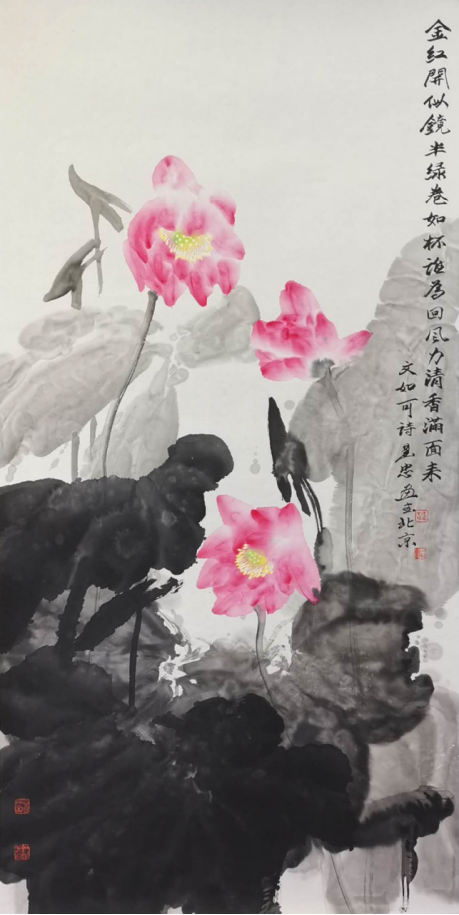 金红開似鏡半绿卷如杯誰為回风力清香滿面来
文如可诗是忠益并北京